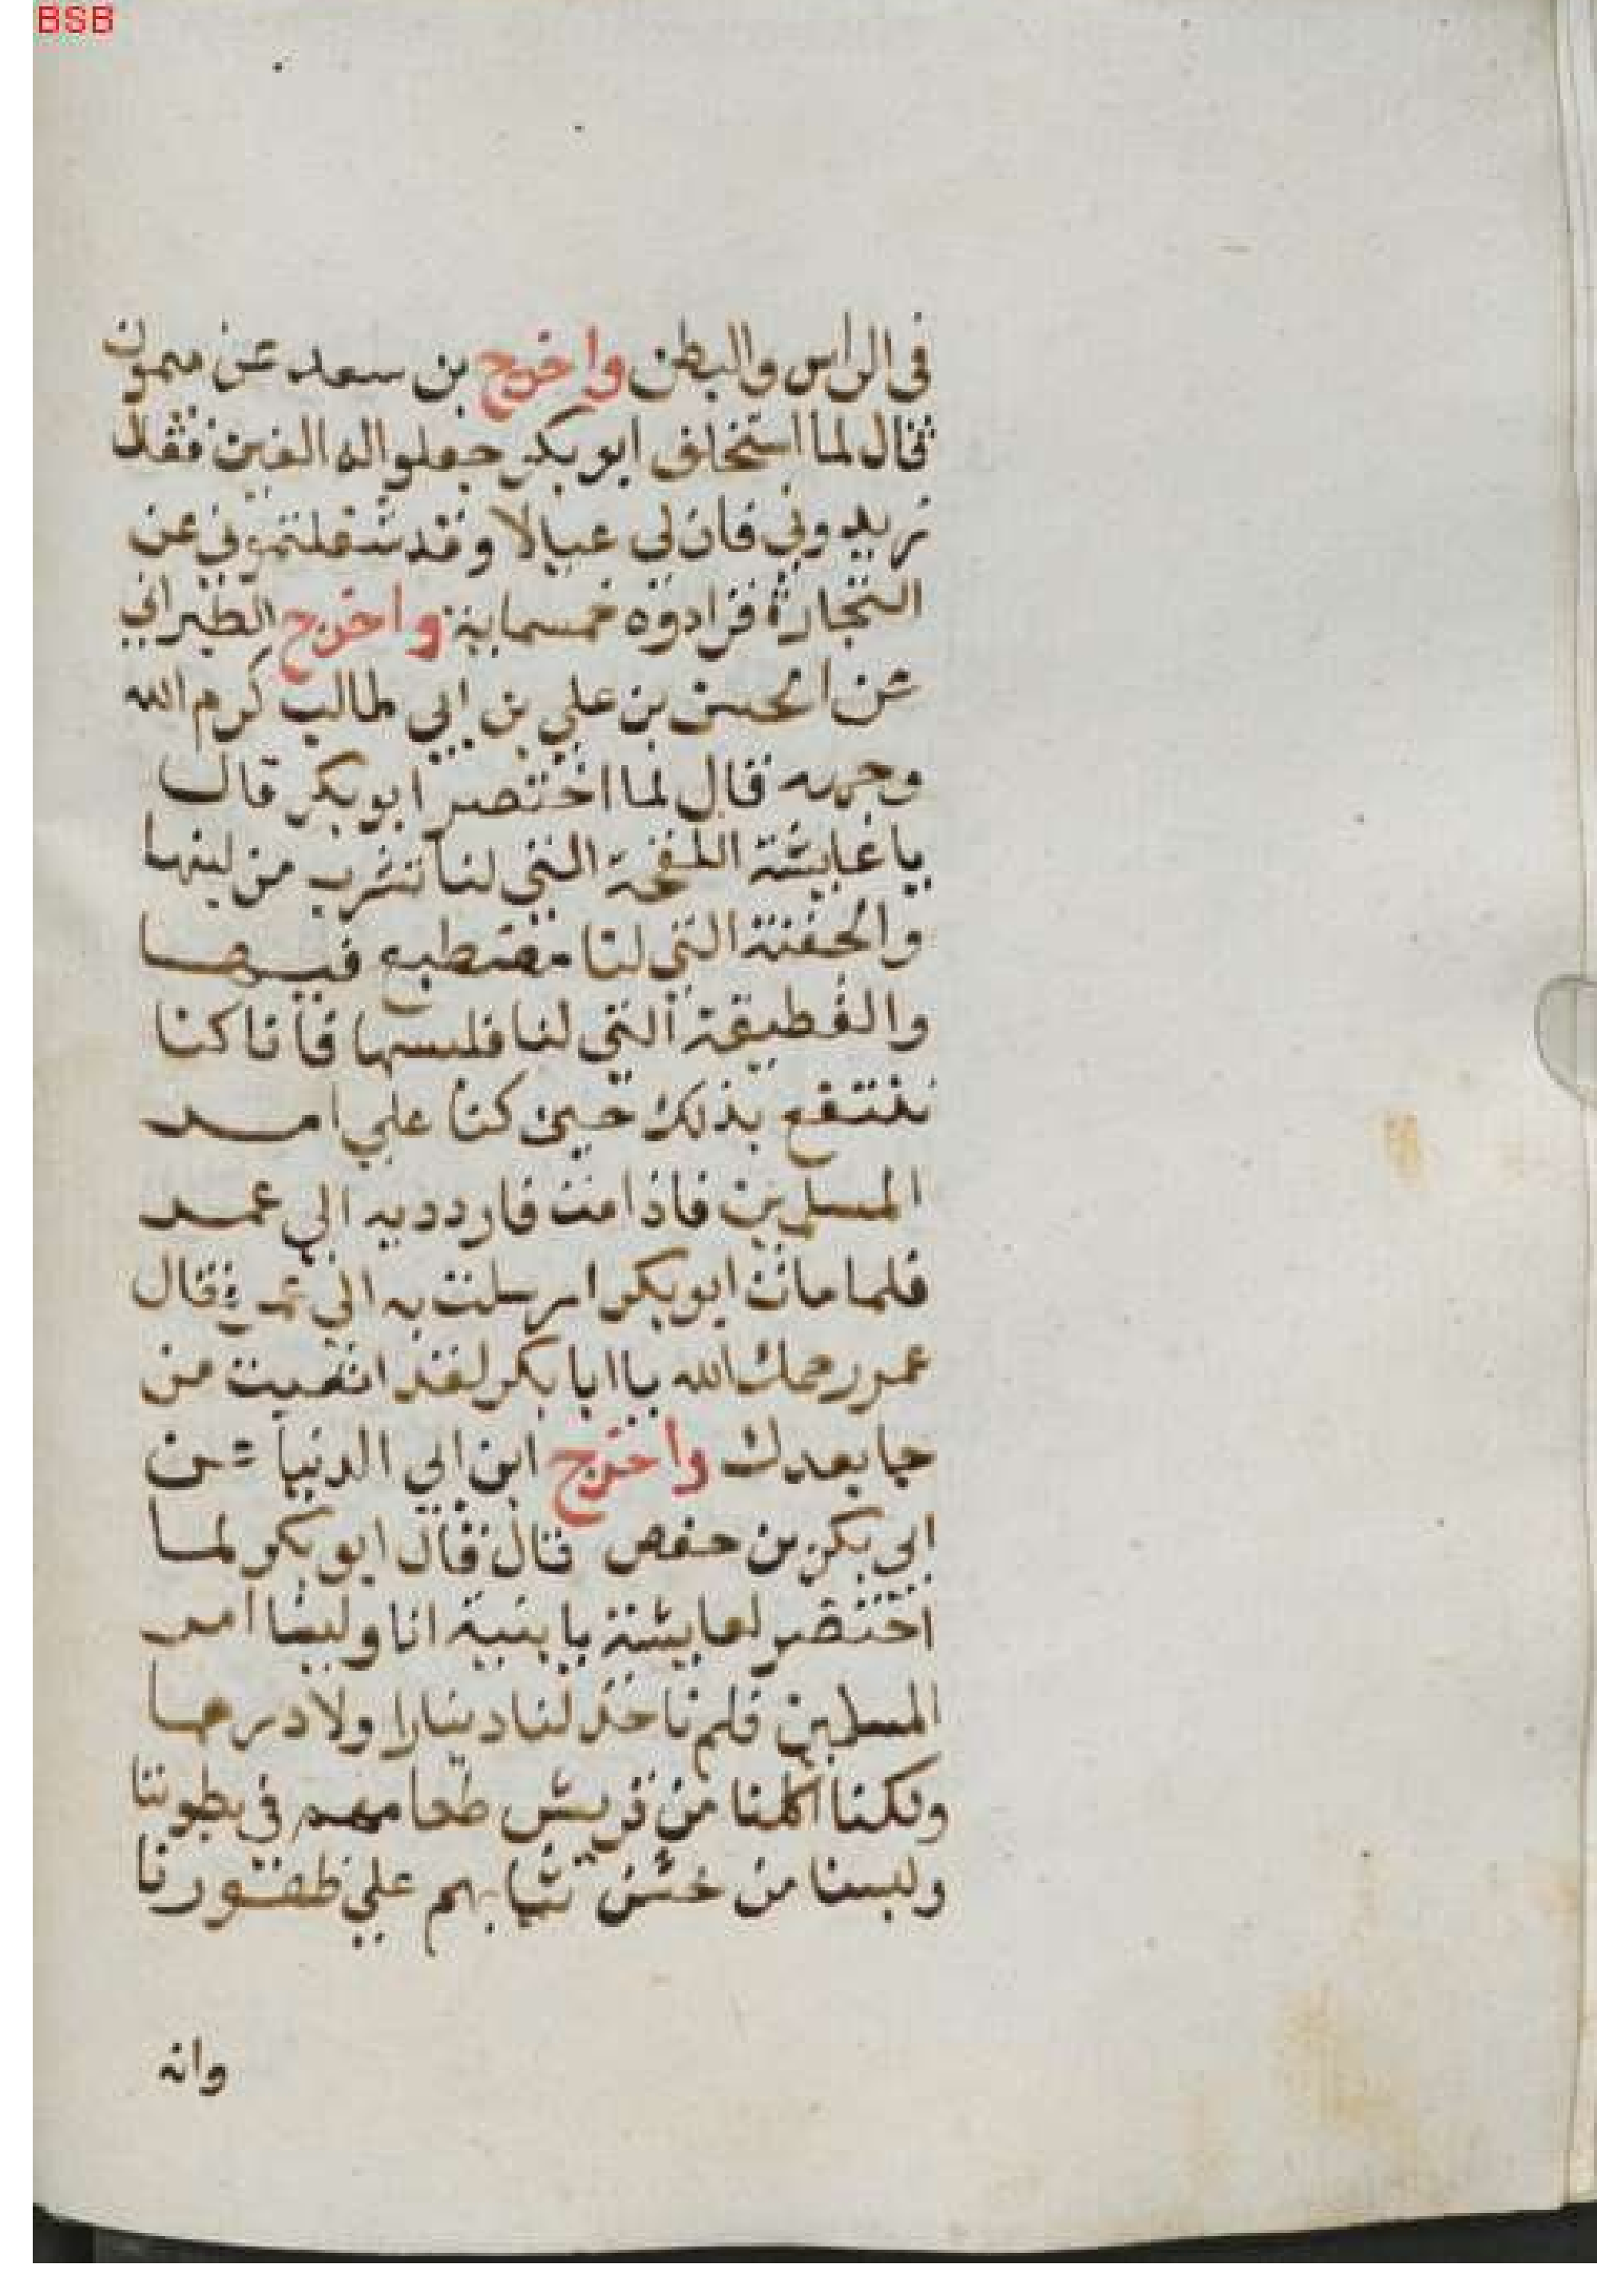 BSB
في الراس والبطن واخرج بن سعد عن ميمون
قال لما استخلف ابو بكر جعلوا له الفين فقال
زيدوني فان لي عيالا وقد شغلتموني عن
التجارة فزادوه خمسماية واخرج الطبراني
عن الحسن بن علي بن ابي طالب كرم الله
وجهه قال لما احتضر ابو بكر قال
يا عايشة اللقحة التي لنا نشرب من لبنها
والجفنة التي لنا نصطبع فيها
والقطيفة التي لنا نلبسها فانا كنا
ننتفع بذلك حين كنا علي امر
المسلمين فاذا مت فارددیه الي عمر
فلما مات ابو بكر ارسلت به الي عمر فقال
عمر رحمك الله يا ابا بكر لقد اتعبت من
جا بعدك واخرج ابن ابي الدنيا عن
ابي بكر بن حفص قال قال ابو بكر لما
احتضر لعايشة يا بنية انا ولينا امر
المسلمين فلم ناخذ لنا دينارا ولا درهما
ولكنا اكلنا من قريش طعامهم في بطوننا
ولبسنا من خشن ثيابهم علي ظهورنا
وانه